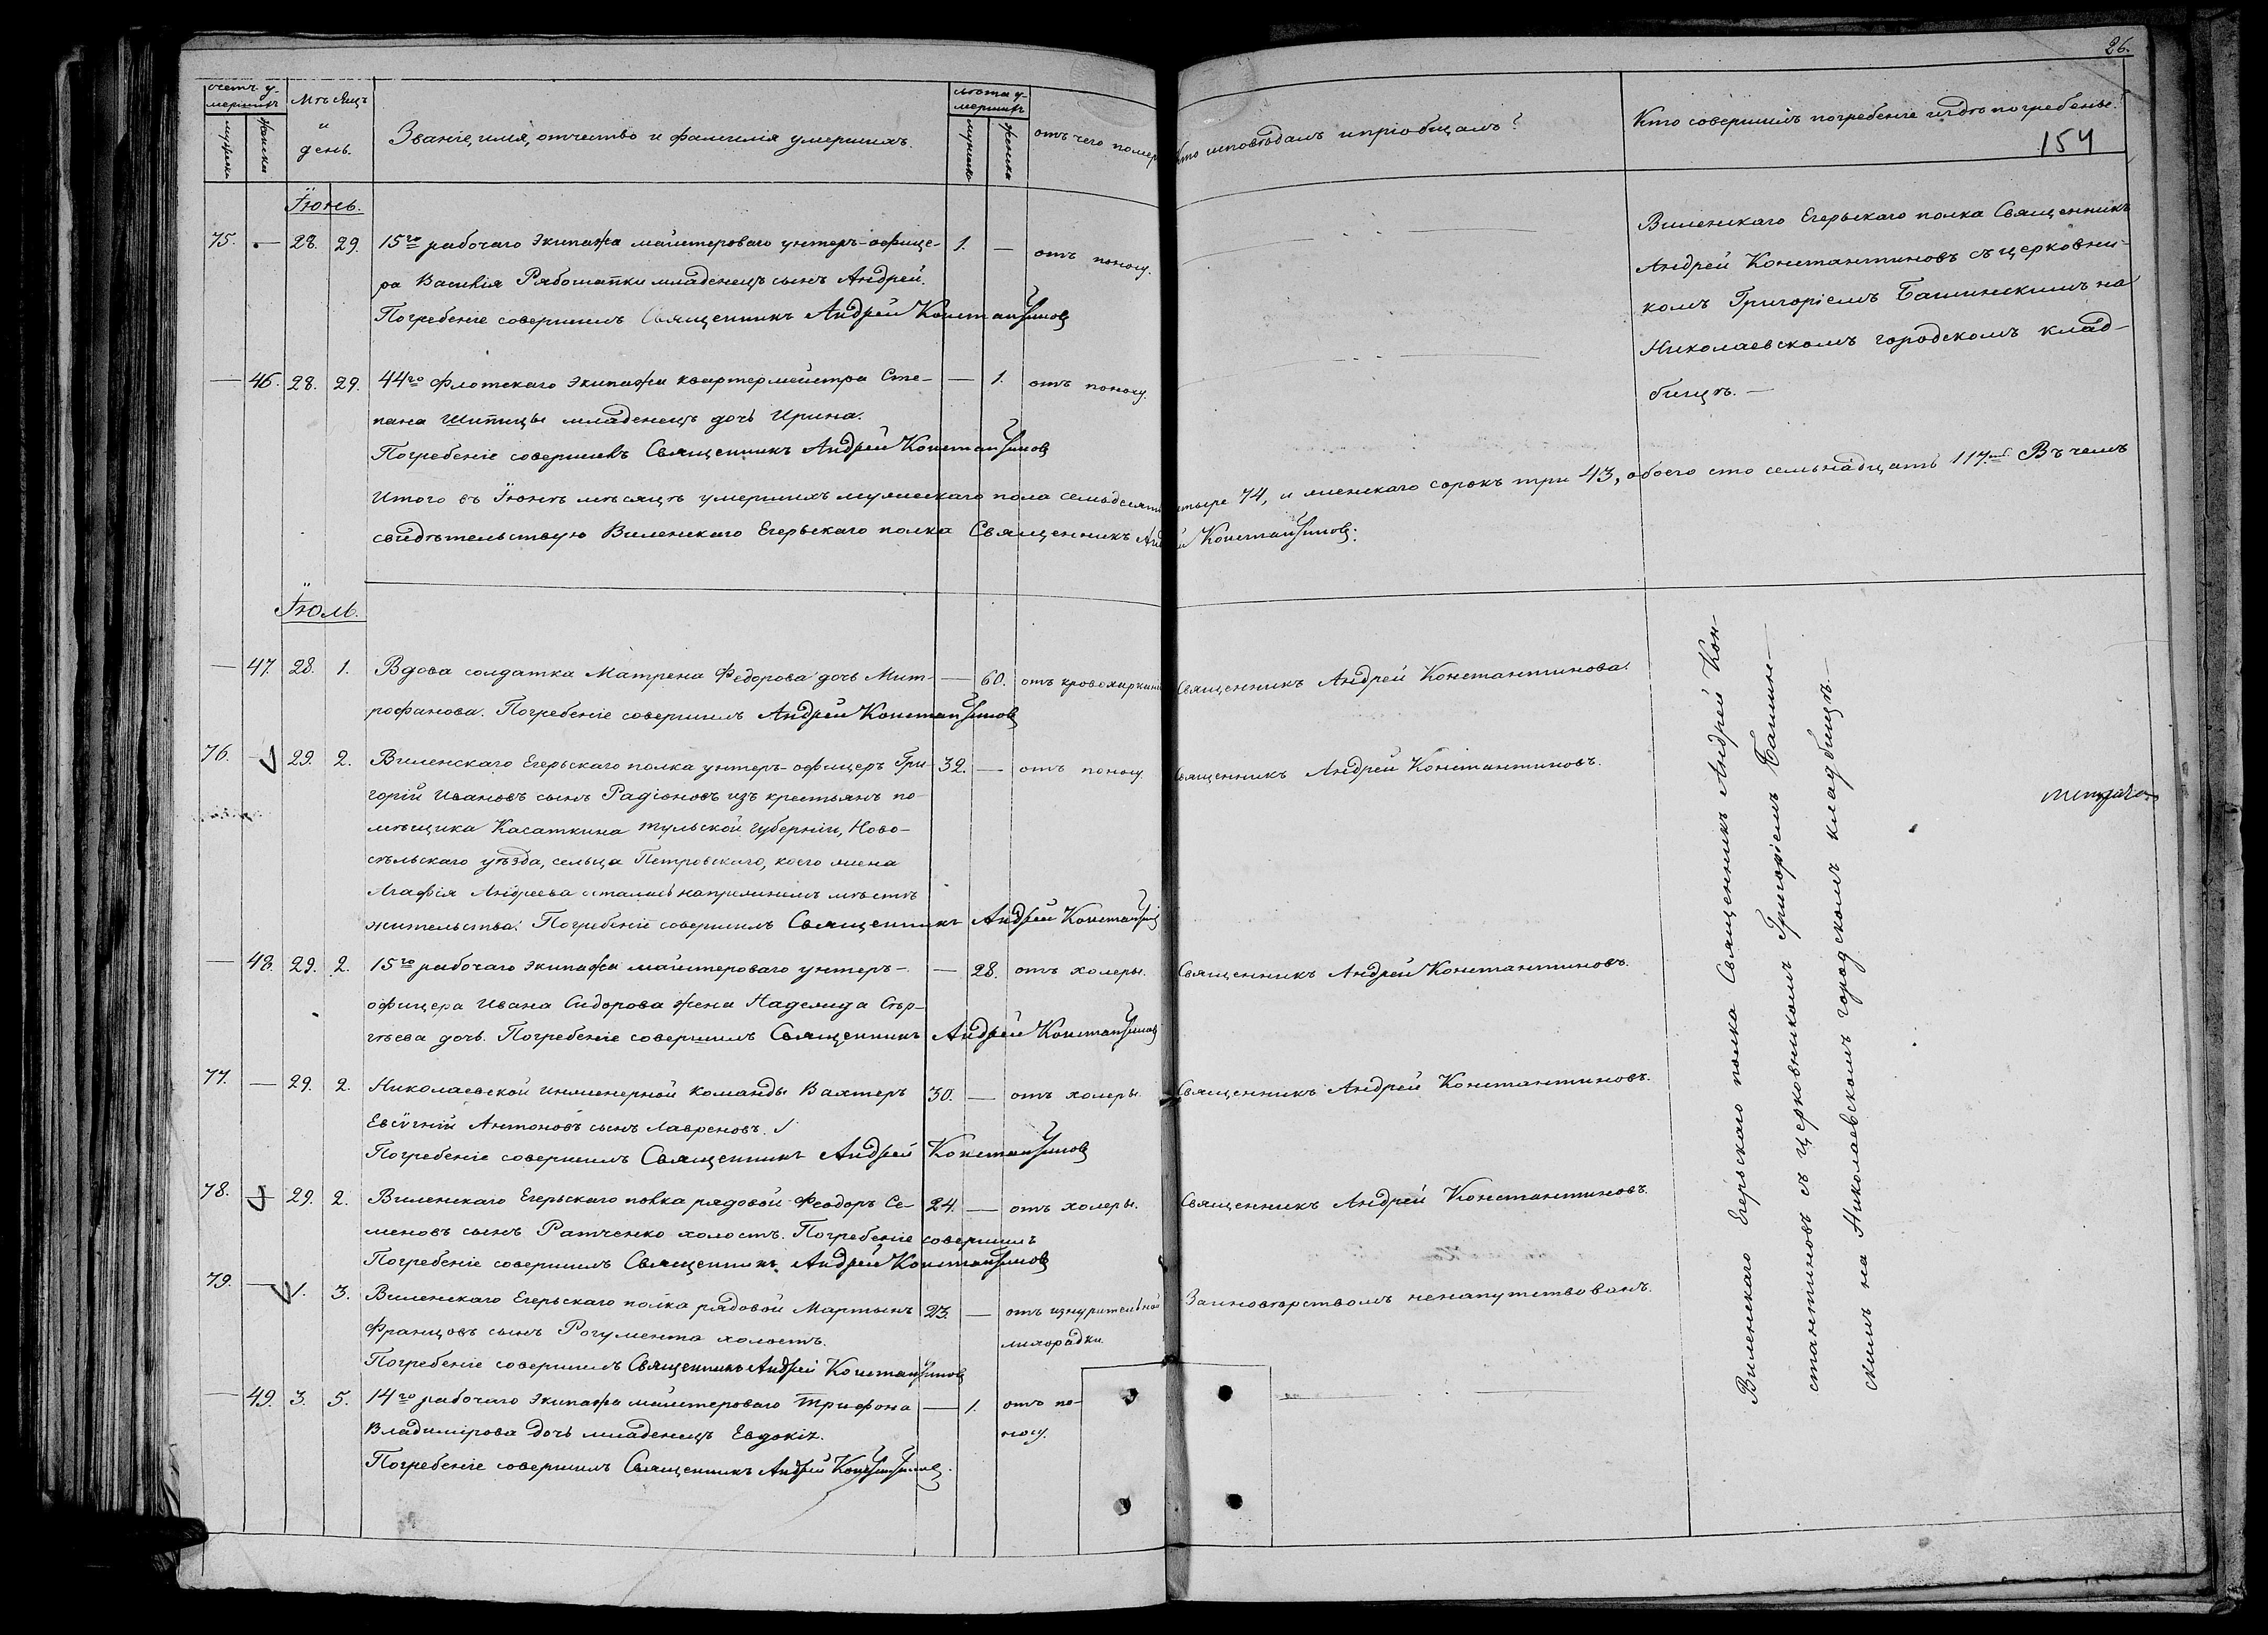 26.
154
счетъ у-
мершихъ
Мѣсяцъ
и
день.
Званіе, имя, отчество и фамилія умершихъ.
лѣта у-
мершихъ
отъ чего померъ
Кто исповѣдалъ и пріобщалъ?
Кто совершилъ погребеніе и гдѣ погребены?
мужска
женска
мужска
женска
Іюнь.
75. — 28. 29. 15го рабочаго экипажа мастероваго унтеръ-офице- 1. — отъ поносу.
ра Василія Рябошапки младенецъ сынъ Андрей.
Погребеніе совершилъ Священникъ Андрей Константиновъ
Виленскаго Егерьскаго полка Священникъ
Андрей Константиновъ съ церковни-
комъ Григоріемъ Башинскимъ на
Николаевскомъ городскомъ клад-
бищѣ. —
— 46. 28. 29. 44го флотскаго экипажа квартермейстра Сте- — 1. отъ поносу.
пана Шипицы младенецъ дочь Ирина.
Погребеніе совершилъ Священникъ Андрей Константиновъ
Итого въ Іюнѣ мѣсяцѣ умершихъ мужескаго пола семьдесятъ четыре 74, и женскаго сорокъ три 43, обоего сто семьнадцать 117. Въ чемъ
свидѣтельствую Виленскаго Егерьскаго полка Священникъ Андрей Константиновъ.
Іюль.
— 47. 28. 1. Вдова солдатка Матрена Федорова дочь Мит- — 60. отъ кровохарканія Священникъ Андрей Константинова.
рофанова. Погребеніе совершилъ Андрей Константиновъ
76. — 29. 2. Виленскаго Егерьскаго полка унтеръ-офицеръ Гри- 32. — отъ поносу Священникъ Андрей Константиновъ.
горій Ивановъ сынъ Радіоновъ изъ крестьянъ по-
мѣщика Касаткина Тульской губерніи, Ново-
сѣльскаго уѣзда, сельца Петровскаго, коего жена
Агафія Андреева осталась на прежнемъ мѣстѣ
жительства. Погребеніе совершилъ Священникъ Андрей Константиновъ
— 48. 29. 2. 15го рабочаго экипажа мастероваго унтеръ- — 28. отъ холеры. Священникъ Андрей Константиновъ.
офицера Ивана Сидорова жена Надежда Сер-
гѣева дочь. Погребеніе совершилъ Священникъ Андрей Константиновъ
77. — 29. 2. Николаевской инженерной команды Вахтеръ 30. — отъ холеры Священникъ Андрей Константиновъ.
Евсигній Антоновъ сынъ Лавреновъ.
Погребеніе совершилъ Священникъ Андрей Константиновъ
78. — 29. 2. Виленскаго Егерьскаго полка рядовой Феодоръ Се- 24. — отъ холеры. Священникъ Андрей Константиновъ.
меновъ сынъ Ратченко холостъ. Погребеніе совершилъ
Погребеніе совершилъ Священникъ Андрей Константиновъ
79. — 1. 3. Виленскаго Егерьскаго полка рядовой Мартынъ 23. — отъ изнурительной Заиновѣрствомъ ненапутствованъ.
Францовъ сынъ Рогумента холостъ. лихорадки.
Погребеніе совершилъ Священникъ Андрей Константиновъ
— 49. 3. 5. 14го рабочаго экипажа мастероваго Трифона — 1. отъ по-
Владимірова дочь младенецъ Евдокія. носу.
Погребеніе совершилъ Священникъ Андрей Константиновъ.
Виленскаго Егерьскаго полка Священникъ Андрей Кон-
стантиновъ съ церковникомъ Григоріемъ Башин-
скимъ на Николаевскомъ городскомъ кладбищѣ.